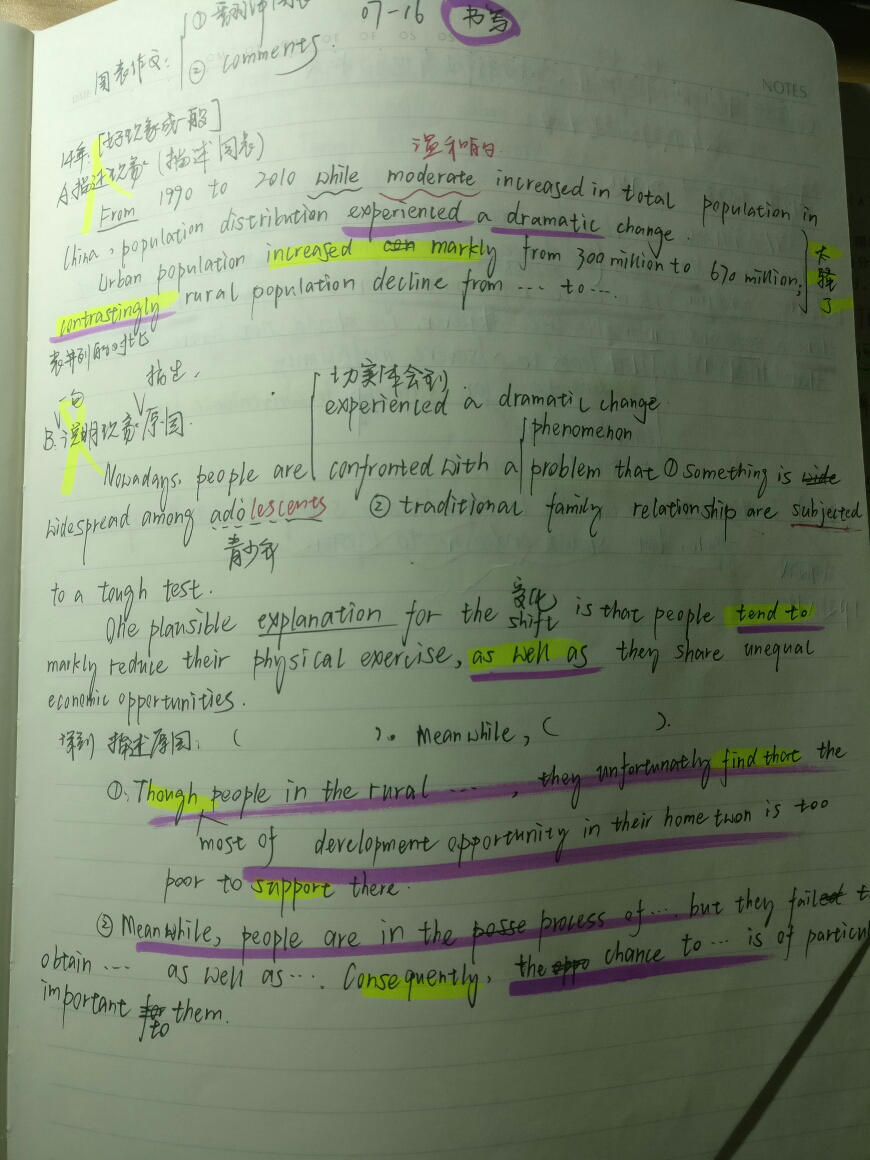 ① 翻译图表
图表作文: 07-16 书写
② comments.
NOTES
14年: [好现象或一般]
A.描述现象 (描述图表) 温和的
From 1990 to 2010 while moderate increased in total population in
China, population distribution experienced a dramatic change.
Urban population increased markly from 300 million to 670 million, 太骚了
contrastingly rural population decline from ... to ....
表并列的对比
一句 指出, 切实体会到
B.说明现象原因. experienced a dramatic change
phenomenon
Nowadays, people are confronted with a problem that ① something is wide
widespread among adolescents ② traditional family relationship are subjected
青少年
to a tough test.
变化
One plausible explanation for the shift is that people tend to
markly reduce their physical exercise, as well as they share unequal
economic opportunities.
描述原因: ( ). Meanwhile, ( ).
①. Though people in the rural ...., they unfortunatly find that the
most of development opportunity in their home twon is too
poor to support there.
② Meanwhile, people are in the posse process of .... but they failed t
obtain .... as well as .... Consequently, the oppo chance to ... is of particul
important for to them.